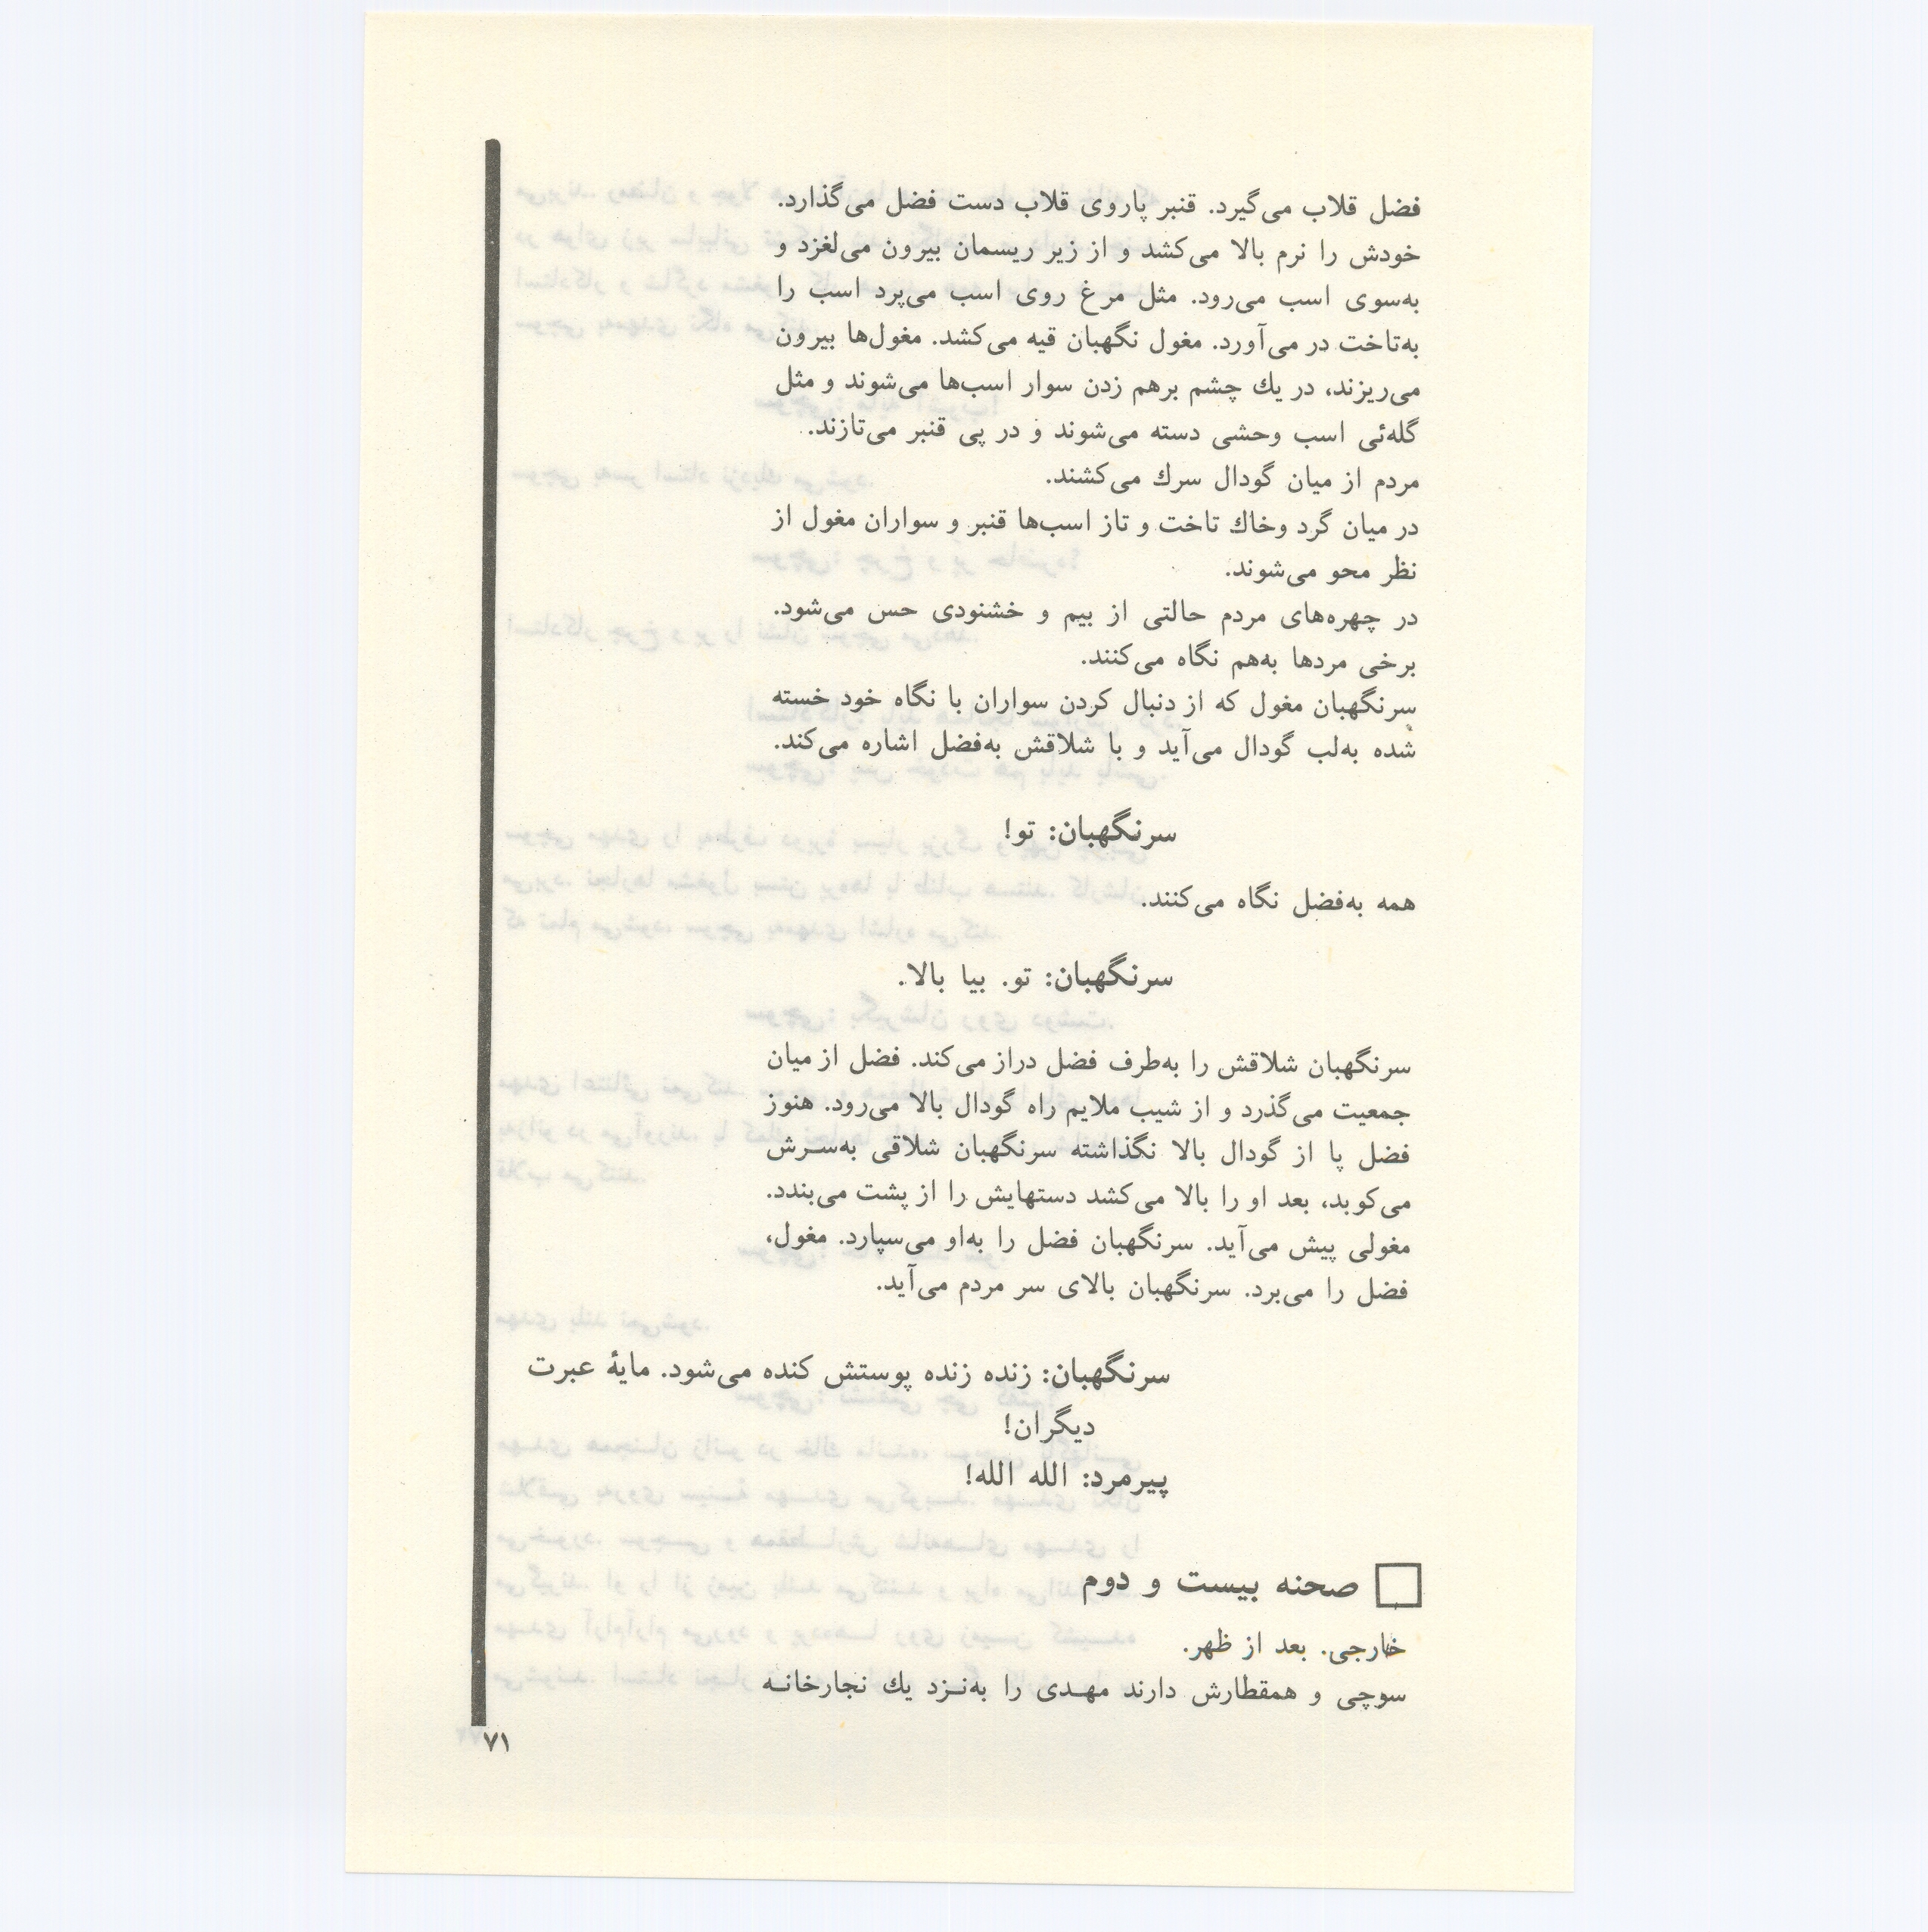 فضل قلاب می‌گیرد. قنبر پاروی قلاب دست فضل می‌گذارد.
خودش را نرم بالا می‌کشد و از زیر ریسمان بیرون می‌لغزد و
به‌سوی اسب می‌رود. مثل مرغ روی اسب می‌پرد اسب را
به‌تاخت در می‌آورد. مغول نگهبان قیه می‌کشد. مغول‌ها بیرون
می‌ریزند، در یك چشم برهم زدن سوار اسب‌ها می‌شوند و مثل
گله‌ئی اسب وحشی دسته می‌شوند و در پی قنبر می‌تازند.
مردم از میان گودال سرك می‌کشند.
در میان گرد وخاك تاخت و تاز اسب‌ها قنبر و سواران مغول از
نظر محو می‌شوند.
در چهره‌های مردم حالتی از بیم و خشنودی حس می‌شود.
برخی مردها به‌هم نگاه می‌کنند.
سرنگهبان مغول که از دنبال کردن سواران با نگاه خود خسته
شده به‌لب گودال می‌آید و با شلاقش به‌فضل اشاره می‌کند.
سرنگهبان: تو!
همه به‌فضل نگاه می‌کنند.
سرنگهبان: تو. بیا بالا.
سرنگهبان شلاقش را به‌طرف فضل دراز می‌کند. فضل از میان
جمعیت می‌گذرد و از شیب ملایم راه گودال بالا می‌رود. هنوز
فضل پا از گودال بالا نگذاشته سرنگهبان شلاقی به‌سـرش
می‌کوبد، بعد او را بالا می‌کشد دستهایش را از پشت می‌بندد.
مغولی پیش می‌آید. سرنگهبان فضل را به‌او می‌سپارد. مغول،
فضل را می‌برد. سرنگهبان بالای سر مردم می‌آید.
سرنگهبان: زنده زنده پوستش کنده می‌شود. مایهٔ عبرت
دیگران!
پیرمرد: الله الله!
صحنه بیست و دوم
خارجی. بعد از ظهر.
سوچی و همقطارش دارند مهـدی را به‌نـزد یك نجارخانـه
۷۱